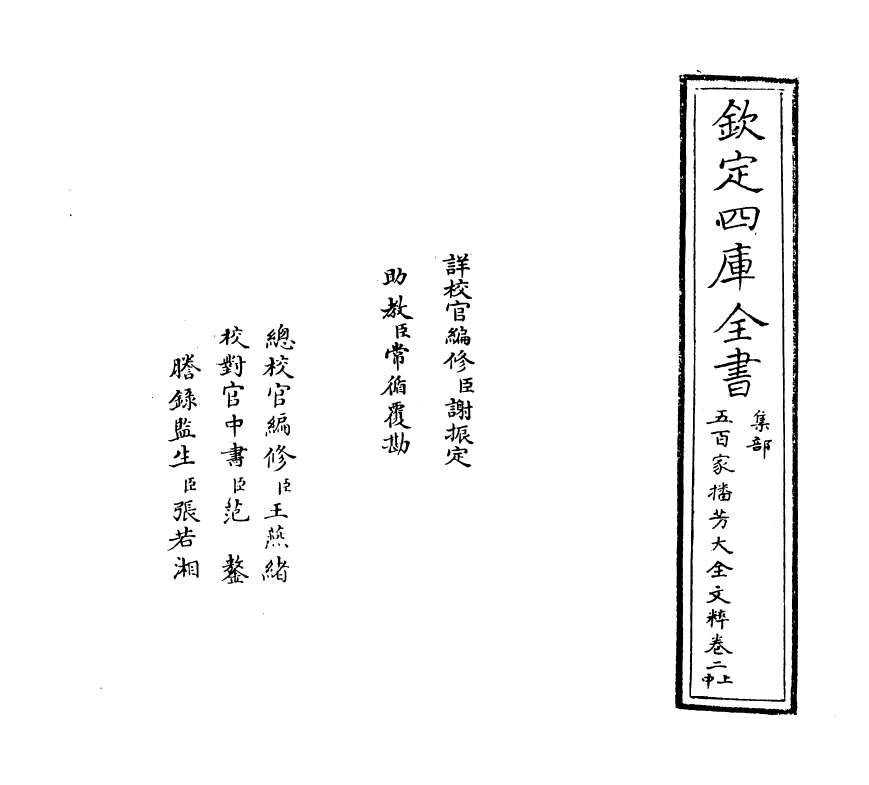 欽定四庫全書
集部
五百家播芳大全文粹卷二上中
詳校官編修臣謝振定
助教臣常循覆勘
總校官編修臣王燕緒
校對官中書臣范鏊
謄錄監生臣張若湘